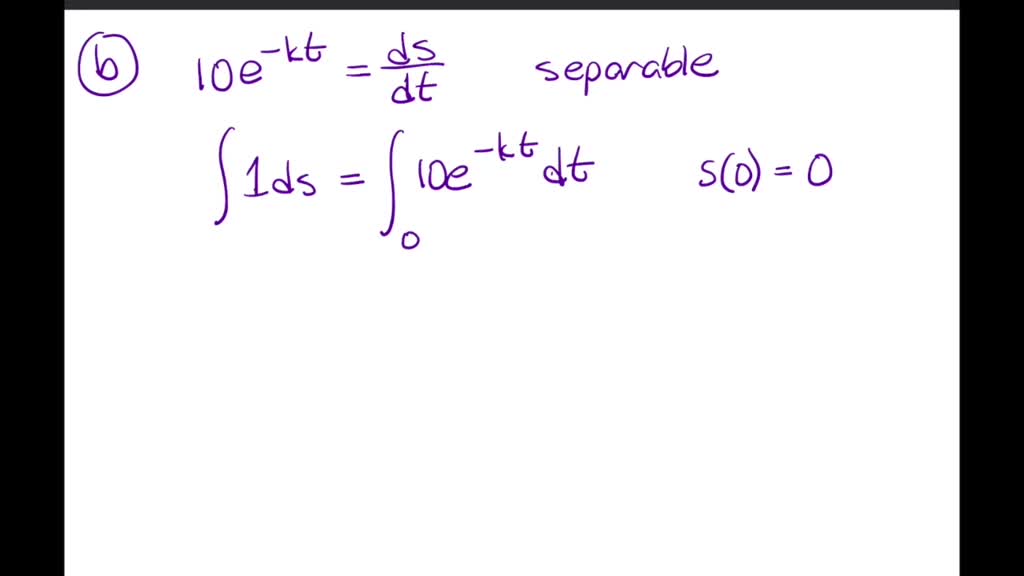 b 10e^{-kt} = ds/dt separable
∫ 1ds = ∫₀ 10e^{-kt} dt s(0) = 0